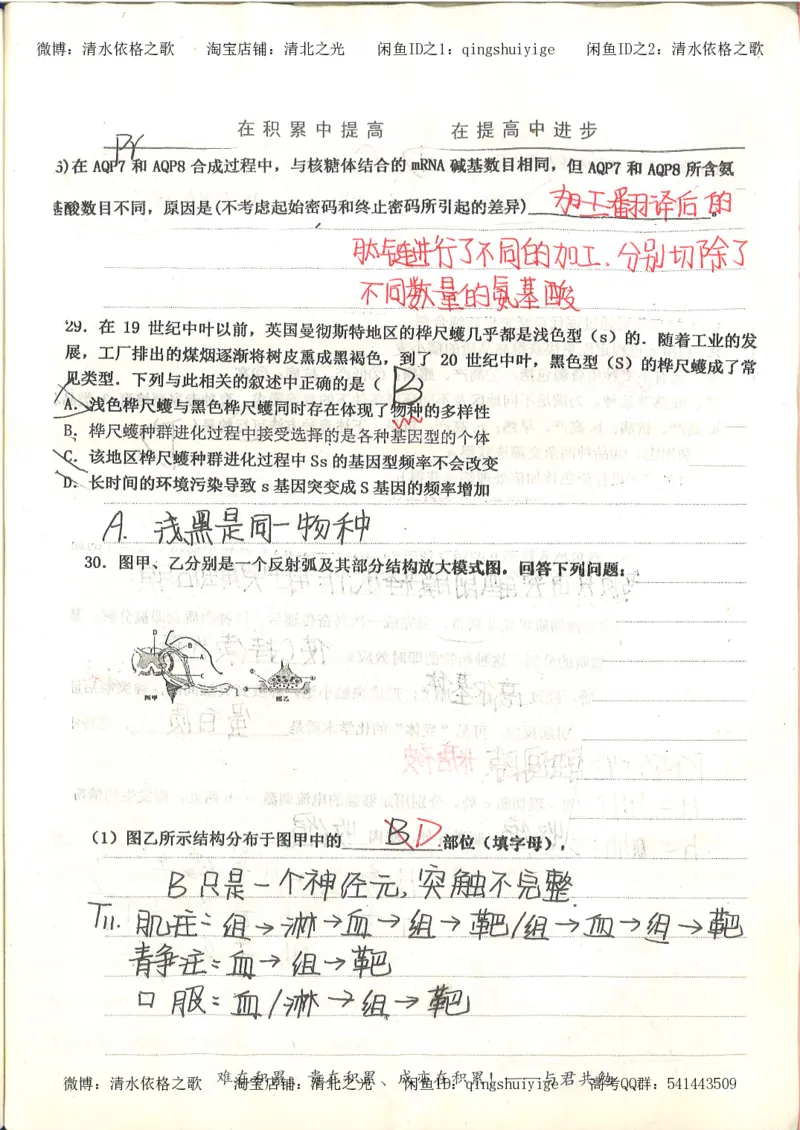 微博：清水依格之歌 淘宝店铺：清北之光 闲鱼ID之1：qingshuiyige 闲鱼ID之2：清水依格之歌
在积累中提高 在提高中进步
Pr
6)在 AQP7 和 AQP8 合成过程中，与核糖体结合的 mRNA 碱基数目相同，但 AQP7 和 AQP8 所含氨
基酸数目不同，原因是(不考虑起始密码和终止密码所引起的差异) 加工翻译后的。
肽链进行了不同的加工、分别切除了
不同数量的氨基酸
29．在 19 世纪中叶以前，英国曼彻斯特地区的桦尺蠖几乎都是浅色型（s）的．随着工业的发
展，工厂排出的煤烟逐渐将树皮熏成黑褐色，到了 20 世纪中叶，黑色型（S）的桦尺蠖成了常
见类型．下列与此相关的叙述中正确的是（ B
A．浅色桦尺蠖与黑色桦尺蠖同时存在体现了物种的多样性
B．桦尺蠖种群进化过程中接受选择的是各种基因型的个体
C．该地区桦尺蠖种群进化过程中 Ss 的基因型频率不会改变
D．长时间的环境污染导致 s 基因突变成 S 基因的频率增加
A. 浅黑是同一物种
30．图甲、乙分别是一个反射弧及其部分结构放大模式图。回答下列问题：
D
B
A
C
图甲 图乙
（1）图乙所示结构分布于图甲中的 B D 部位（填字母），
B只是一个神经元，突触不完整
T11. 肌注：组→淋→血→组→靶/组→血→组→靶
青静注：血→组→靶
口服：血/淋→组→靶
难在积累、贵在积累、成亦在积累！——与君共勉
微博：清水依格之歌 淘宝店铺：清北之光 闲鱼ID：qingshuiyige 高考QQ群：541443509